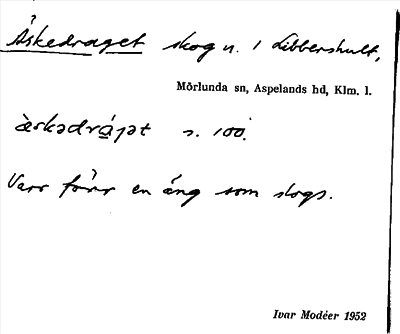 Åskedraget skog n. 1 Libbershult,
Mörlunda sn, Aspelands hd, Klm. l.
æ̀skədrá̱ɟət s. 100.
Varr förr en äng som slogs.
Ivar Modéer 1952